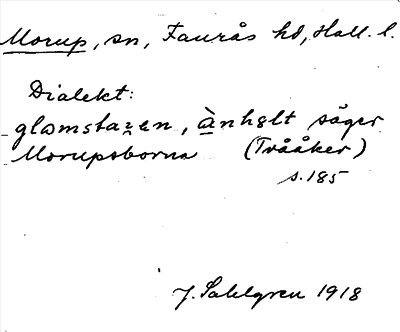 Morup, sn, Faurås hd, Hall. l.
Dialekt:
glømstaʐen, ànhɛlt säger
Morupsborna (Tvååker)
s. 185
J. Sahlgren 1918